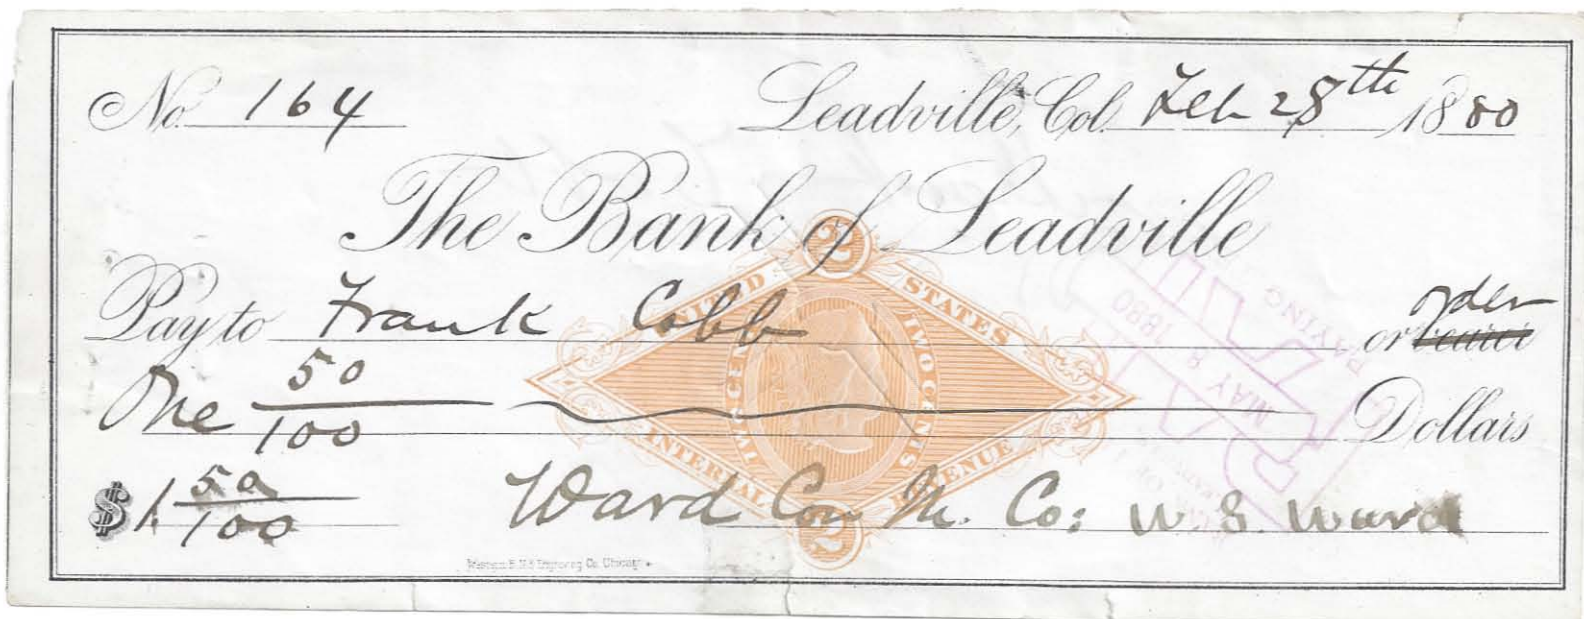 No. 164 Leadville, Col. Feb 28th 1880
The Bank of Leadville
Pay to Frank Cobb or bearer order
One 50/100 Dollars
$1. 50/100 Ward Con M. Co: W. S. Ward
2
UNITED STATES
TWO CENTS TWO CENTS
INTERNAL REVENUE
2
PAYING
MAY 8 1880
Western B. N & Engraving Co. Chicago